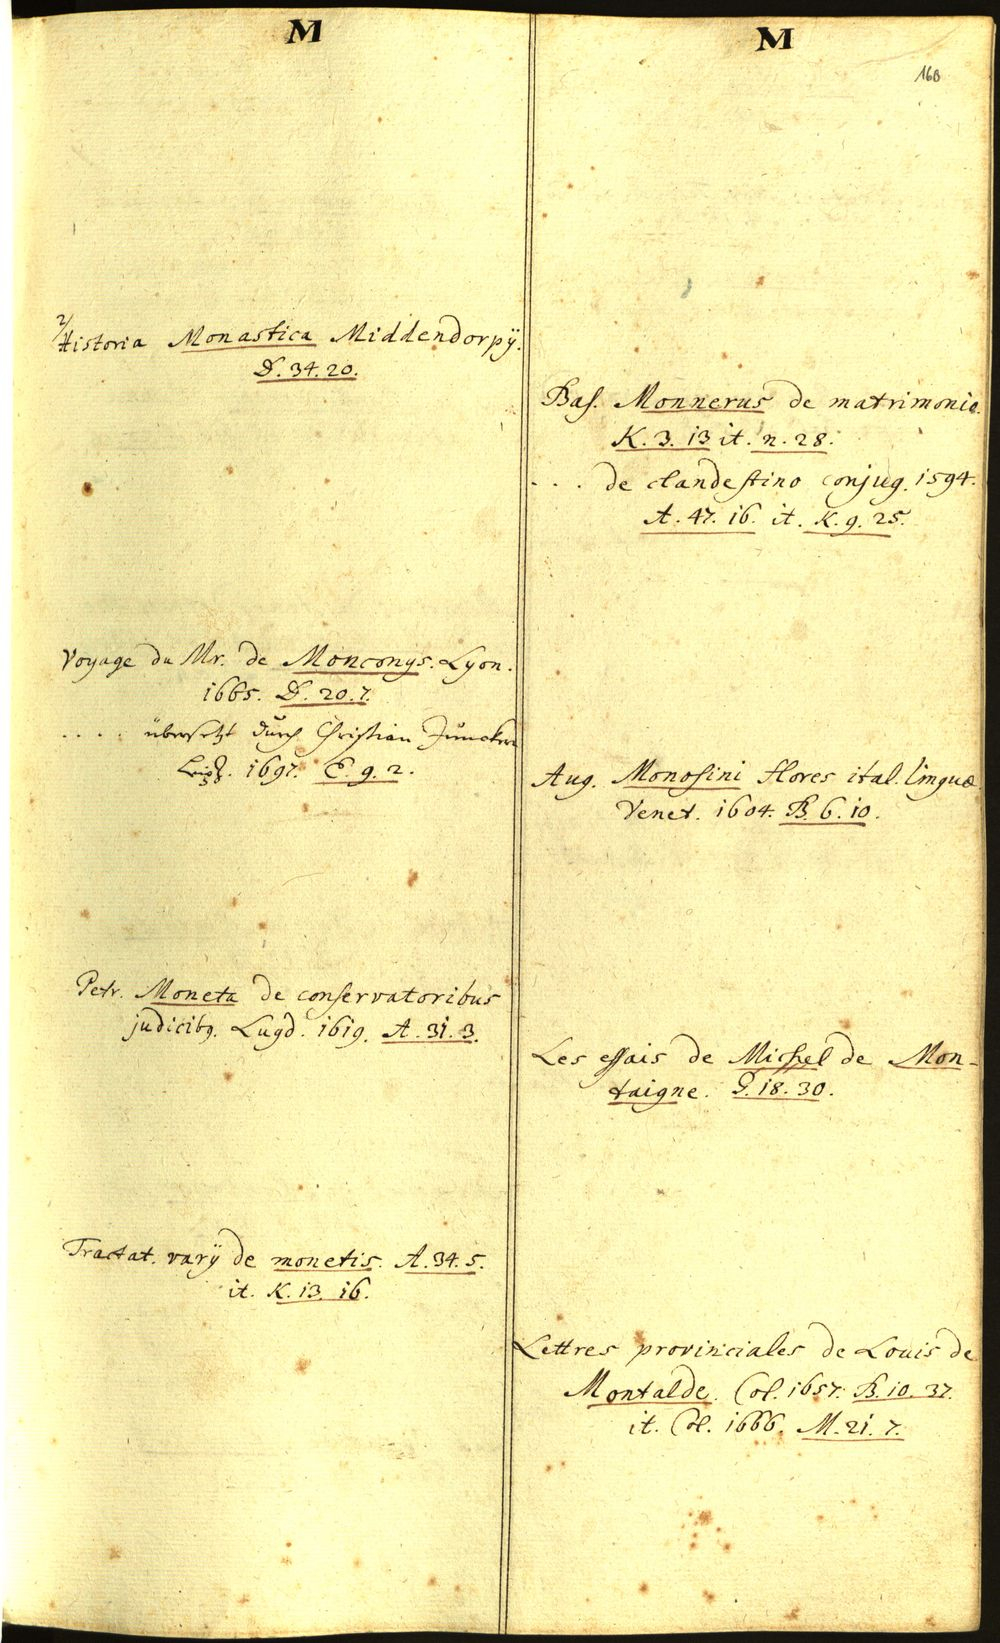 M
2/
Historia Monastica Middendorpÿ.
D. 34. 20.
Voyage du Mr. de Monconys. Lyon.
1665. D. 20. 7.
. . . . übersetzt durch Christian Junckern
Leipz. 1697. E. 9. 2.
Petr. Moneta de conservatoribus
judicibg. Lugd. 1619. A. 31. 3.
Tractat. varÿ de monetis. A. 34. 5.
it. K. 13. 16.
M
168
Bas. Monnerus de matrimonio.
K. 3. 13 it. n. 28.
. . . de clandestino conjug. 1594.
A. 47. 16. it. K. 9. 25.
Aug. Monosini flores ital. linguæ
Venet. 1604. B. 6. 10.
Les essais de Michel de Mon-
taigne. G. 18. 30.
Lettres provinciales de Louis de
Montalde. Col. 1657. B. 10. 37.
it. Col. 1666. M. 21. 7.